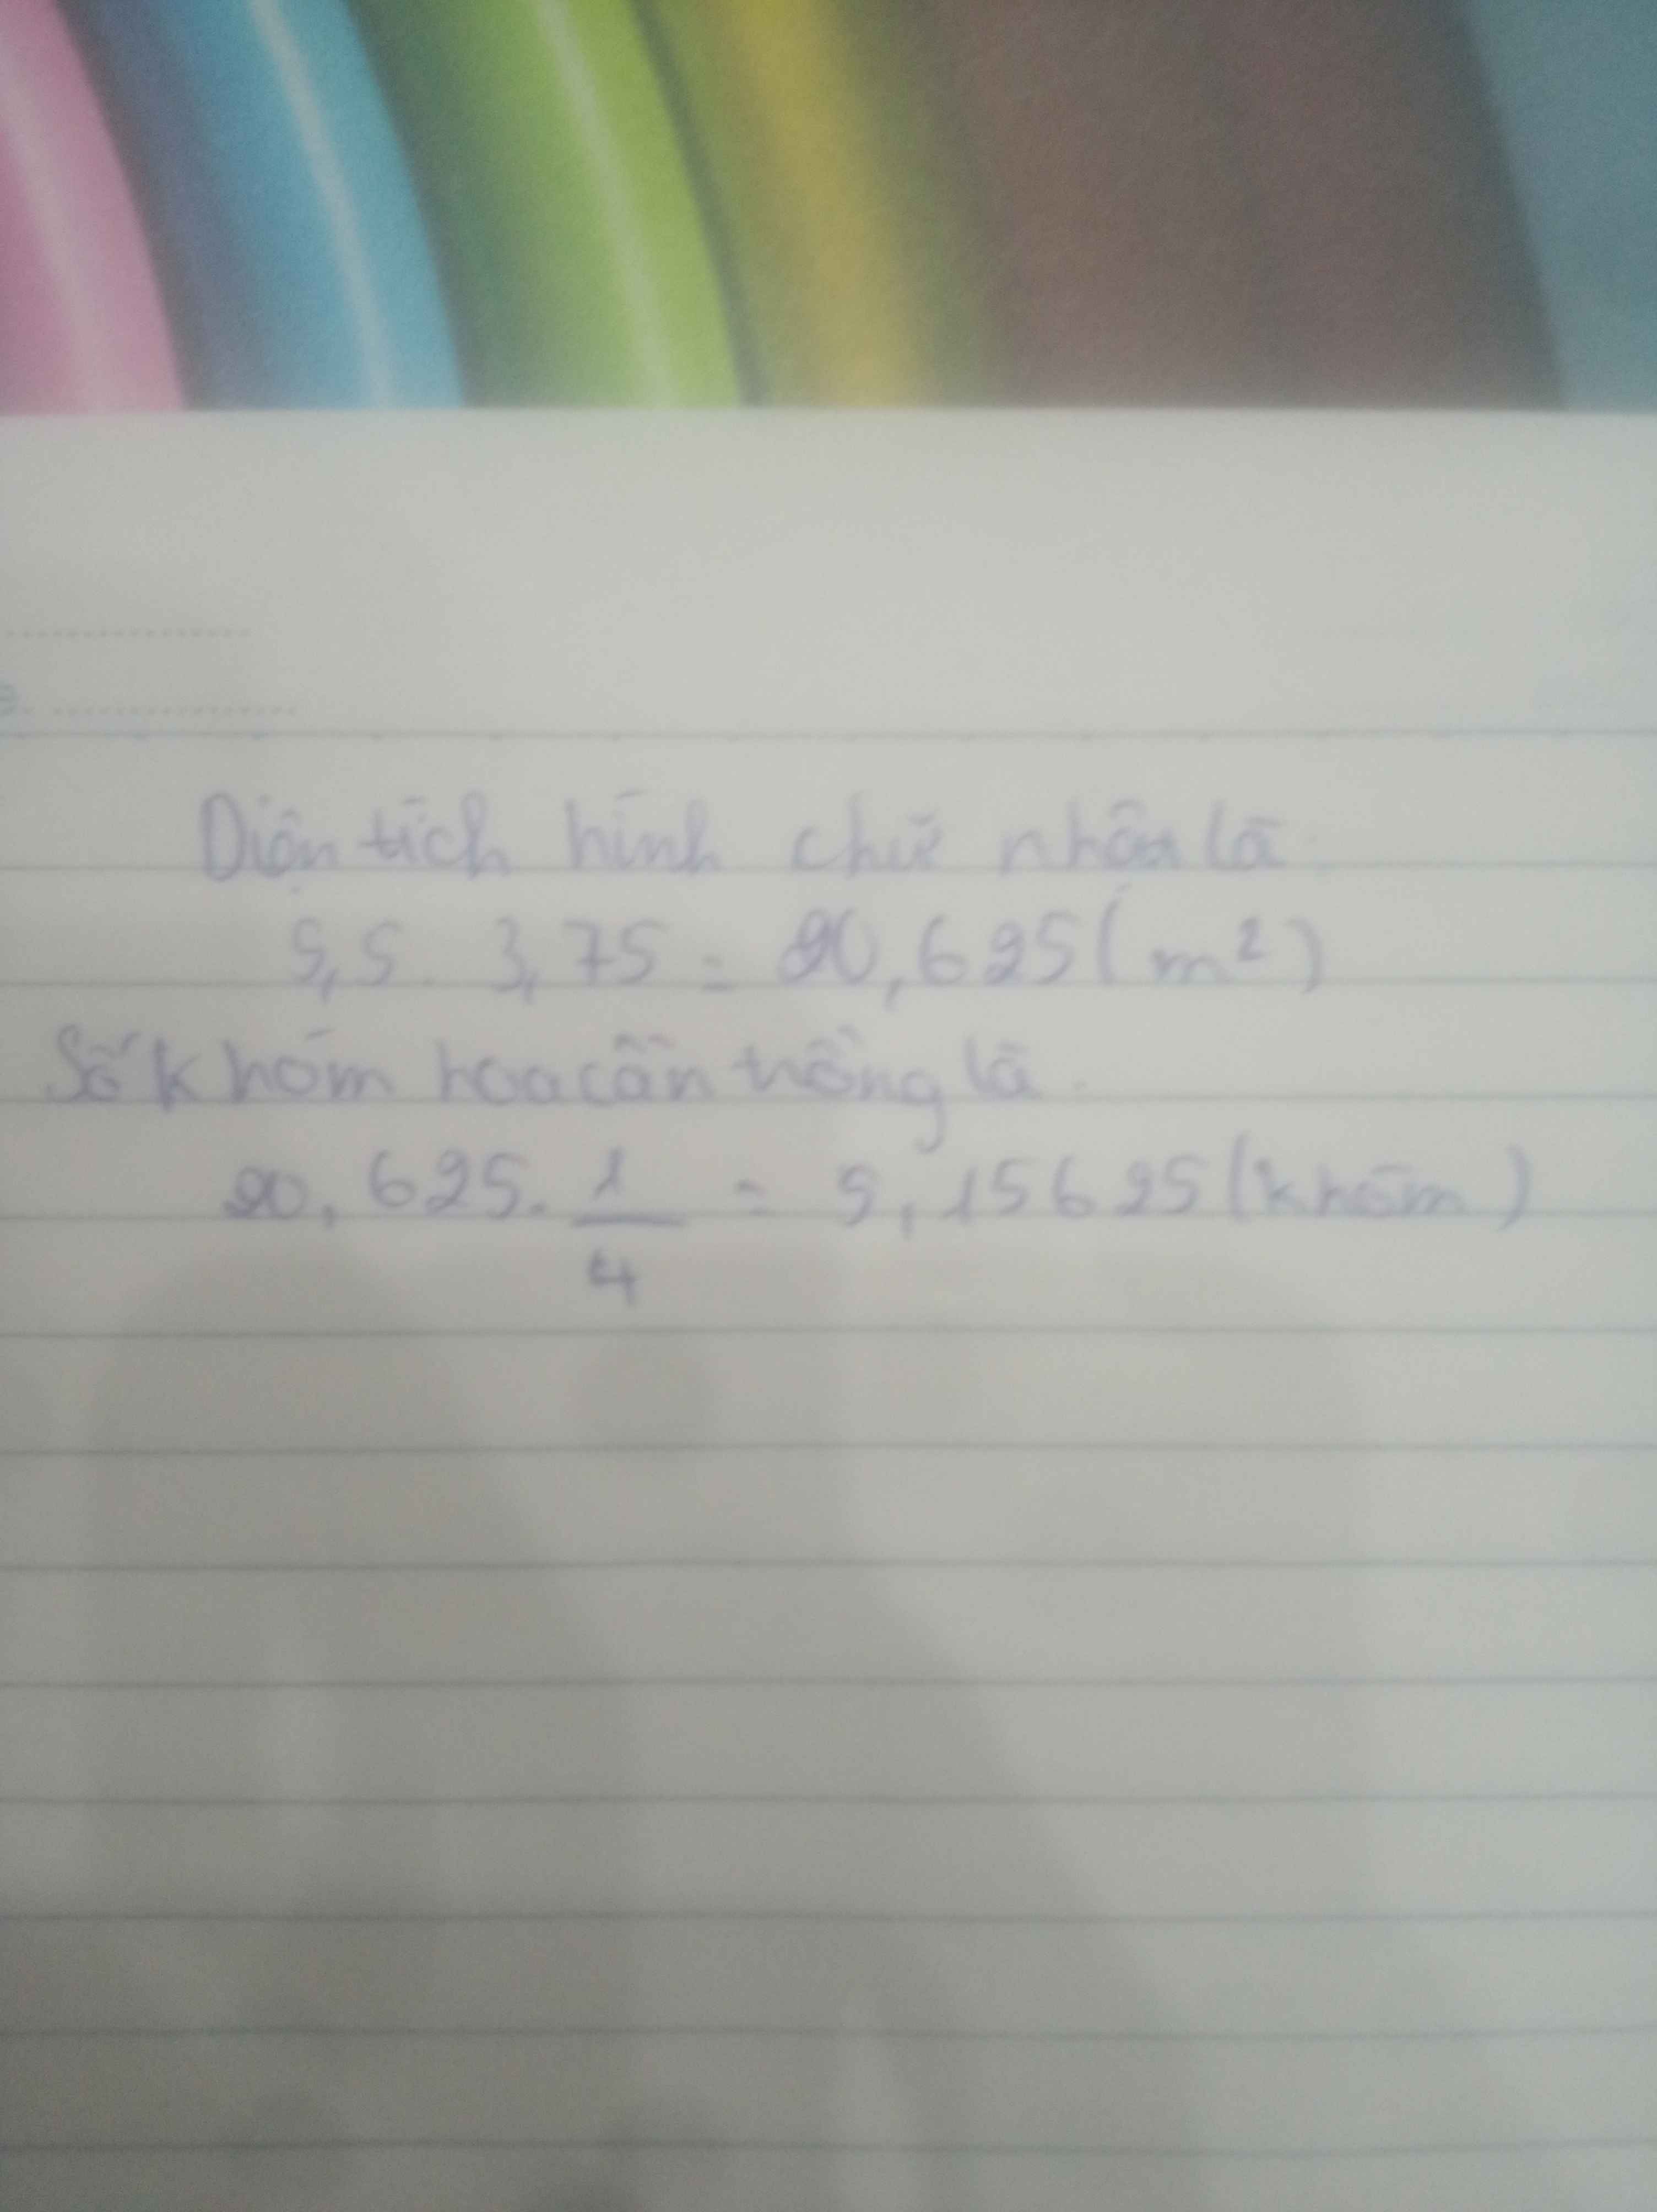 Diện tích hình chữ nhân là
5,5. 3,75 = 20,625 (m²)
Số khóm hoa cần trồng là.
20,625. 1/4 = 5,15625 (khóm)